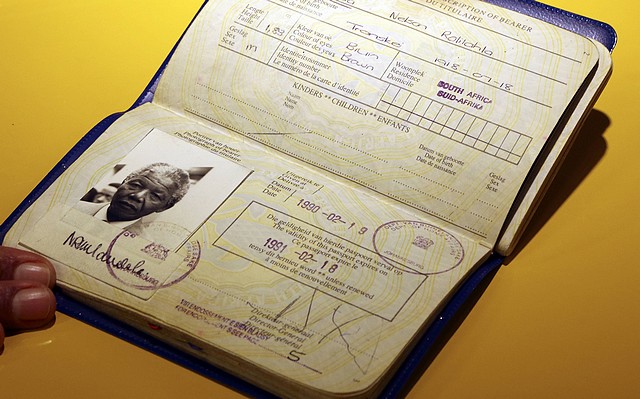 DESCRIPTION OF BEARER
DU TITULAIRE
Nelson Rolihlahla
Lengte
Height
Taille
1,83
Transkei
1918-07-18
Kleur van oë
Colour of eyes
Couleur des yeux
Bruin
Brown
Woonplek
Residence
Domicile
SOUTH AFRICA
SUID-AFRIKA
Geslag
Sex
Sexe
M
Identiteitsnommer
Identity number
Le numéro de la carte d'identité
KINDERS ** CHILDREN ** ENFANTS
Naam
Name
Nom
Datum van geboorte
Date of birth
Date de naissance
Geslag
Sex
Sexe
Portret van houer
Photograph of bearer
Uitgereik te
Issued at
Délivré à
Datum
Date
Date
1990-02-19
Die geldigheid van hierdie paspoort verval op
The validity of this passport expires on
Ce passeport expire le
1991-02-18
tensy dit hernieu word ** unless renewed
à moins de renouvellement
NRMandela
Direkteur-generaal
Director-General
Directeur général
5